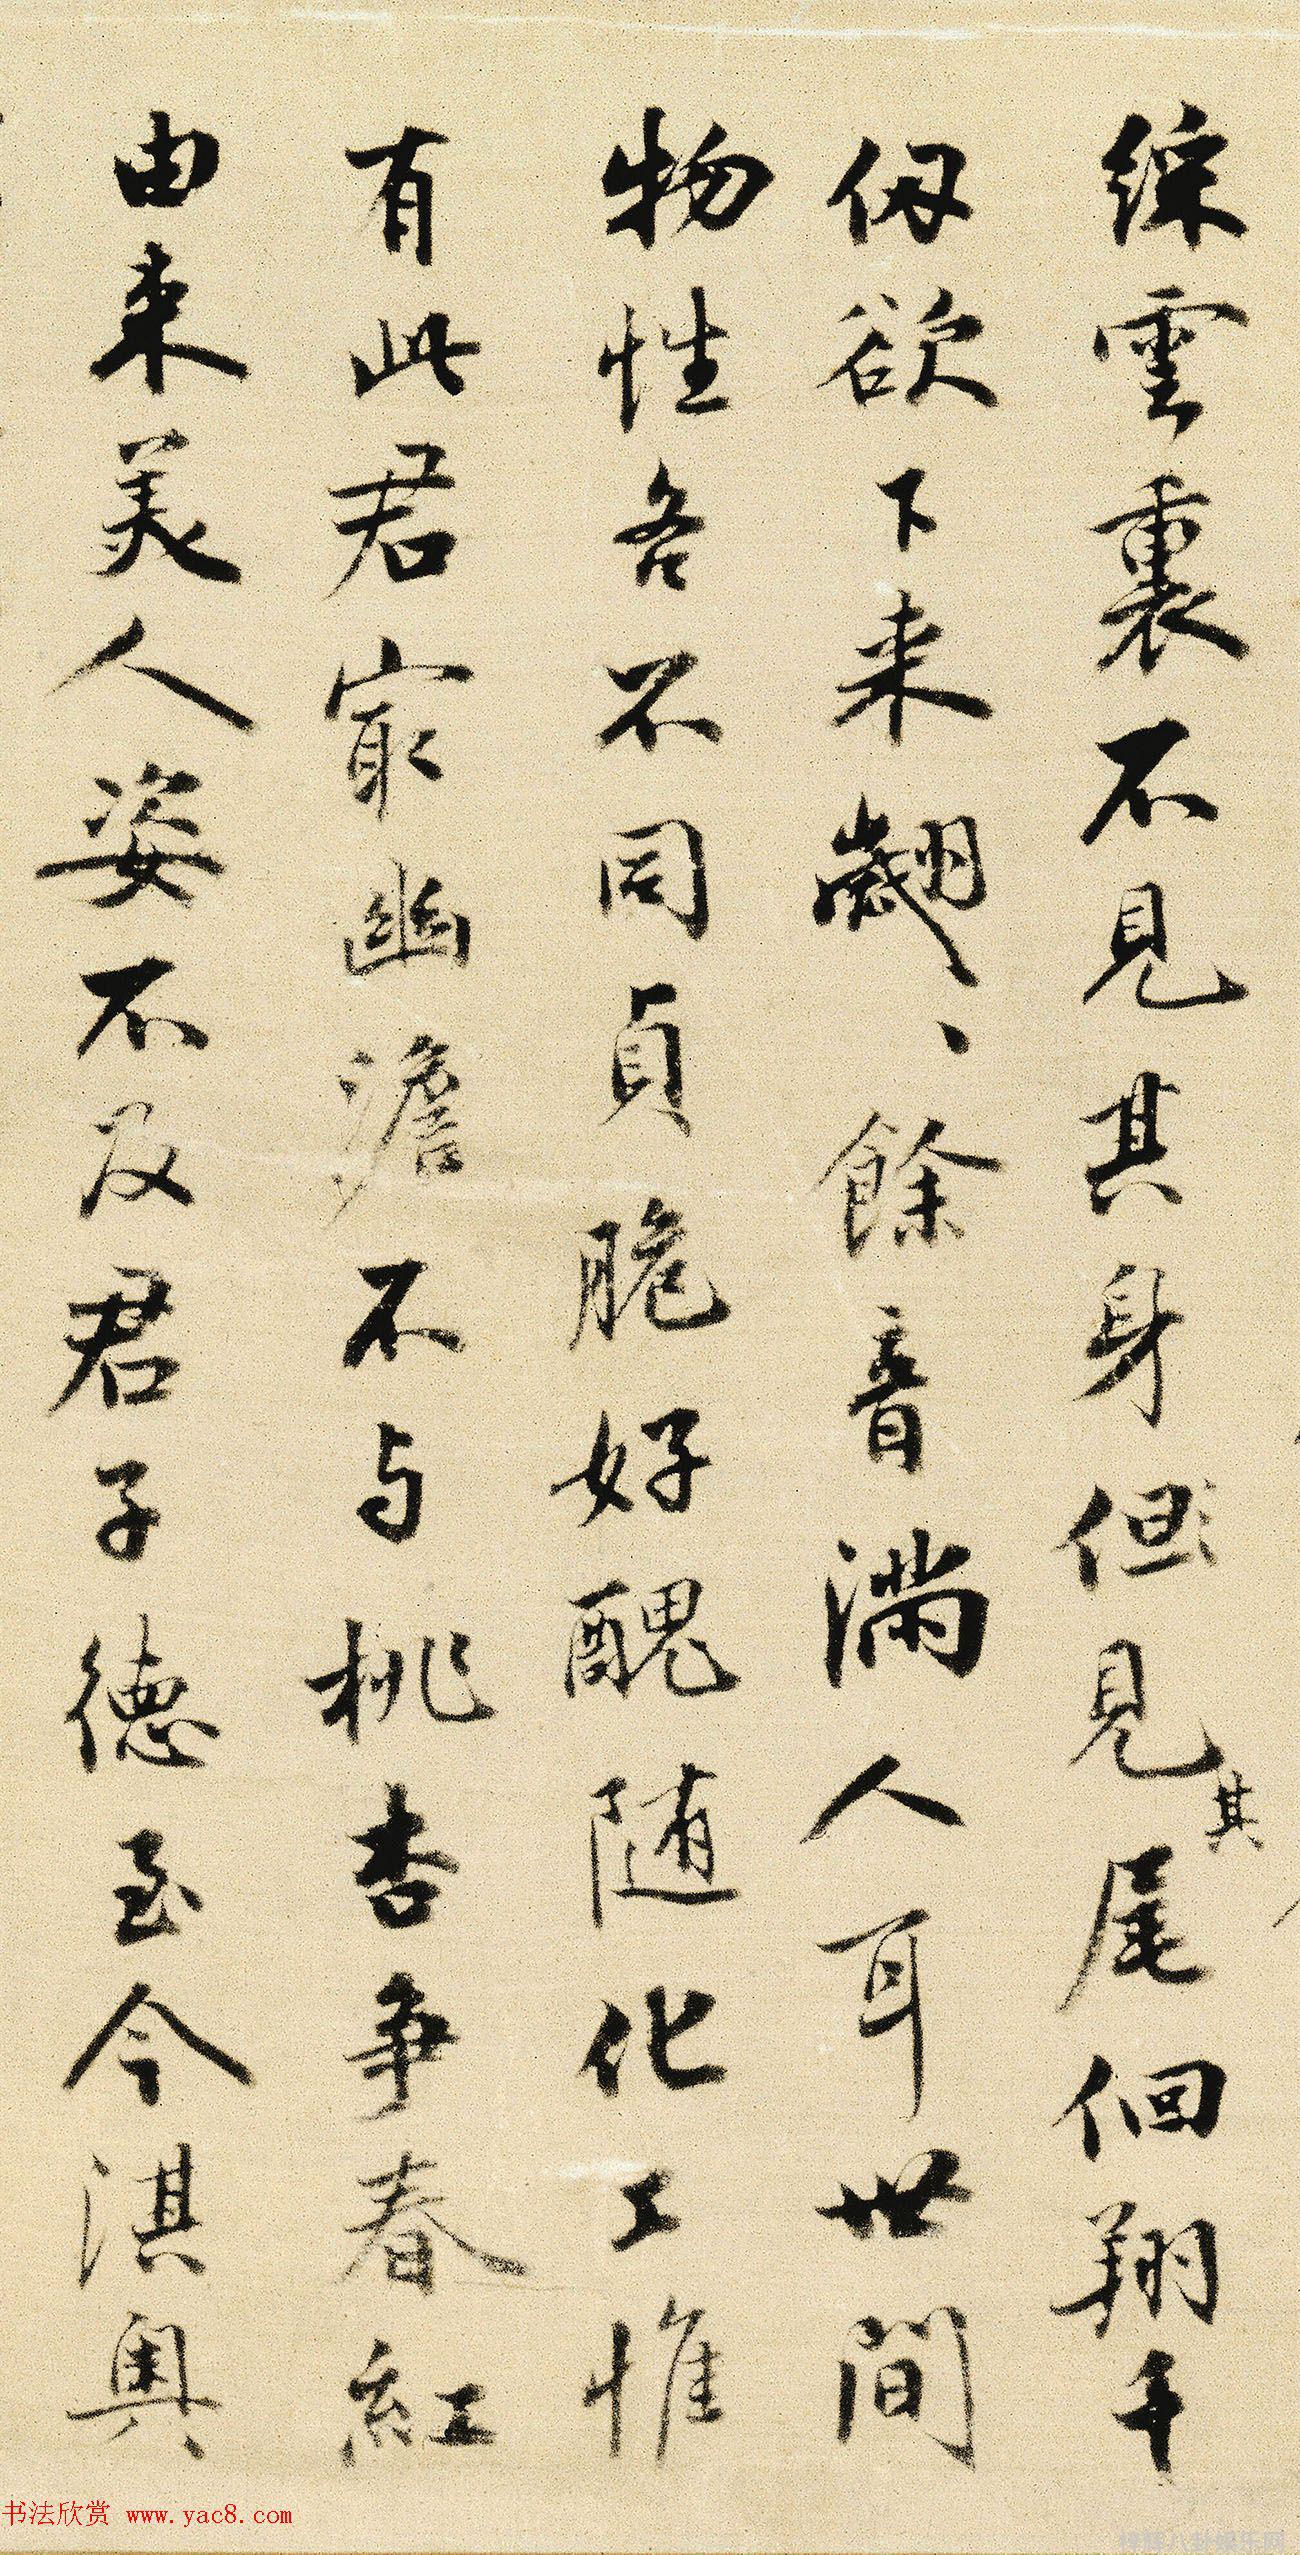 綵雲裏不見其身但見其尾徊翔千
仭欲下来翽、、餘音滿人耳世間
物性各不同貞脆好醜随化工惟
有此君寂幽澹不与桃杏争春紅
由来美人姿不及君子德至今淇奥
书法欣赏 www.yac8.com